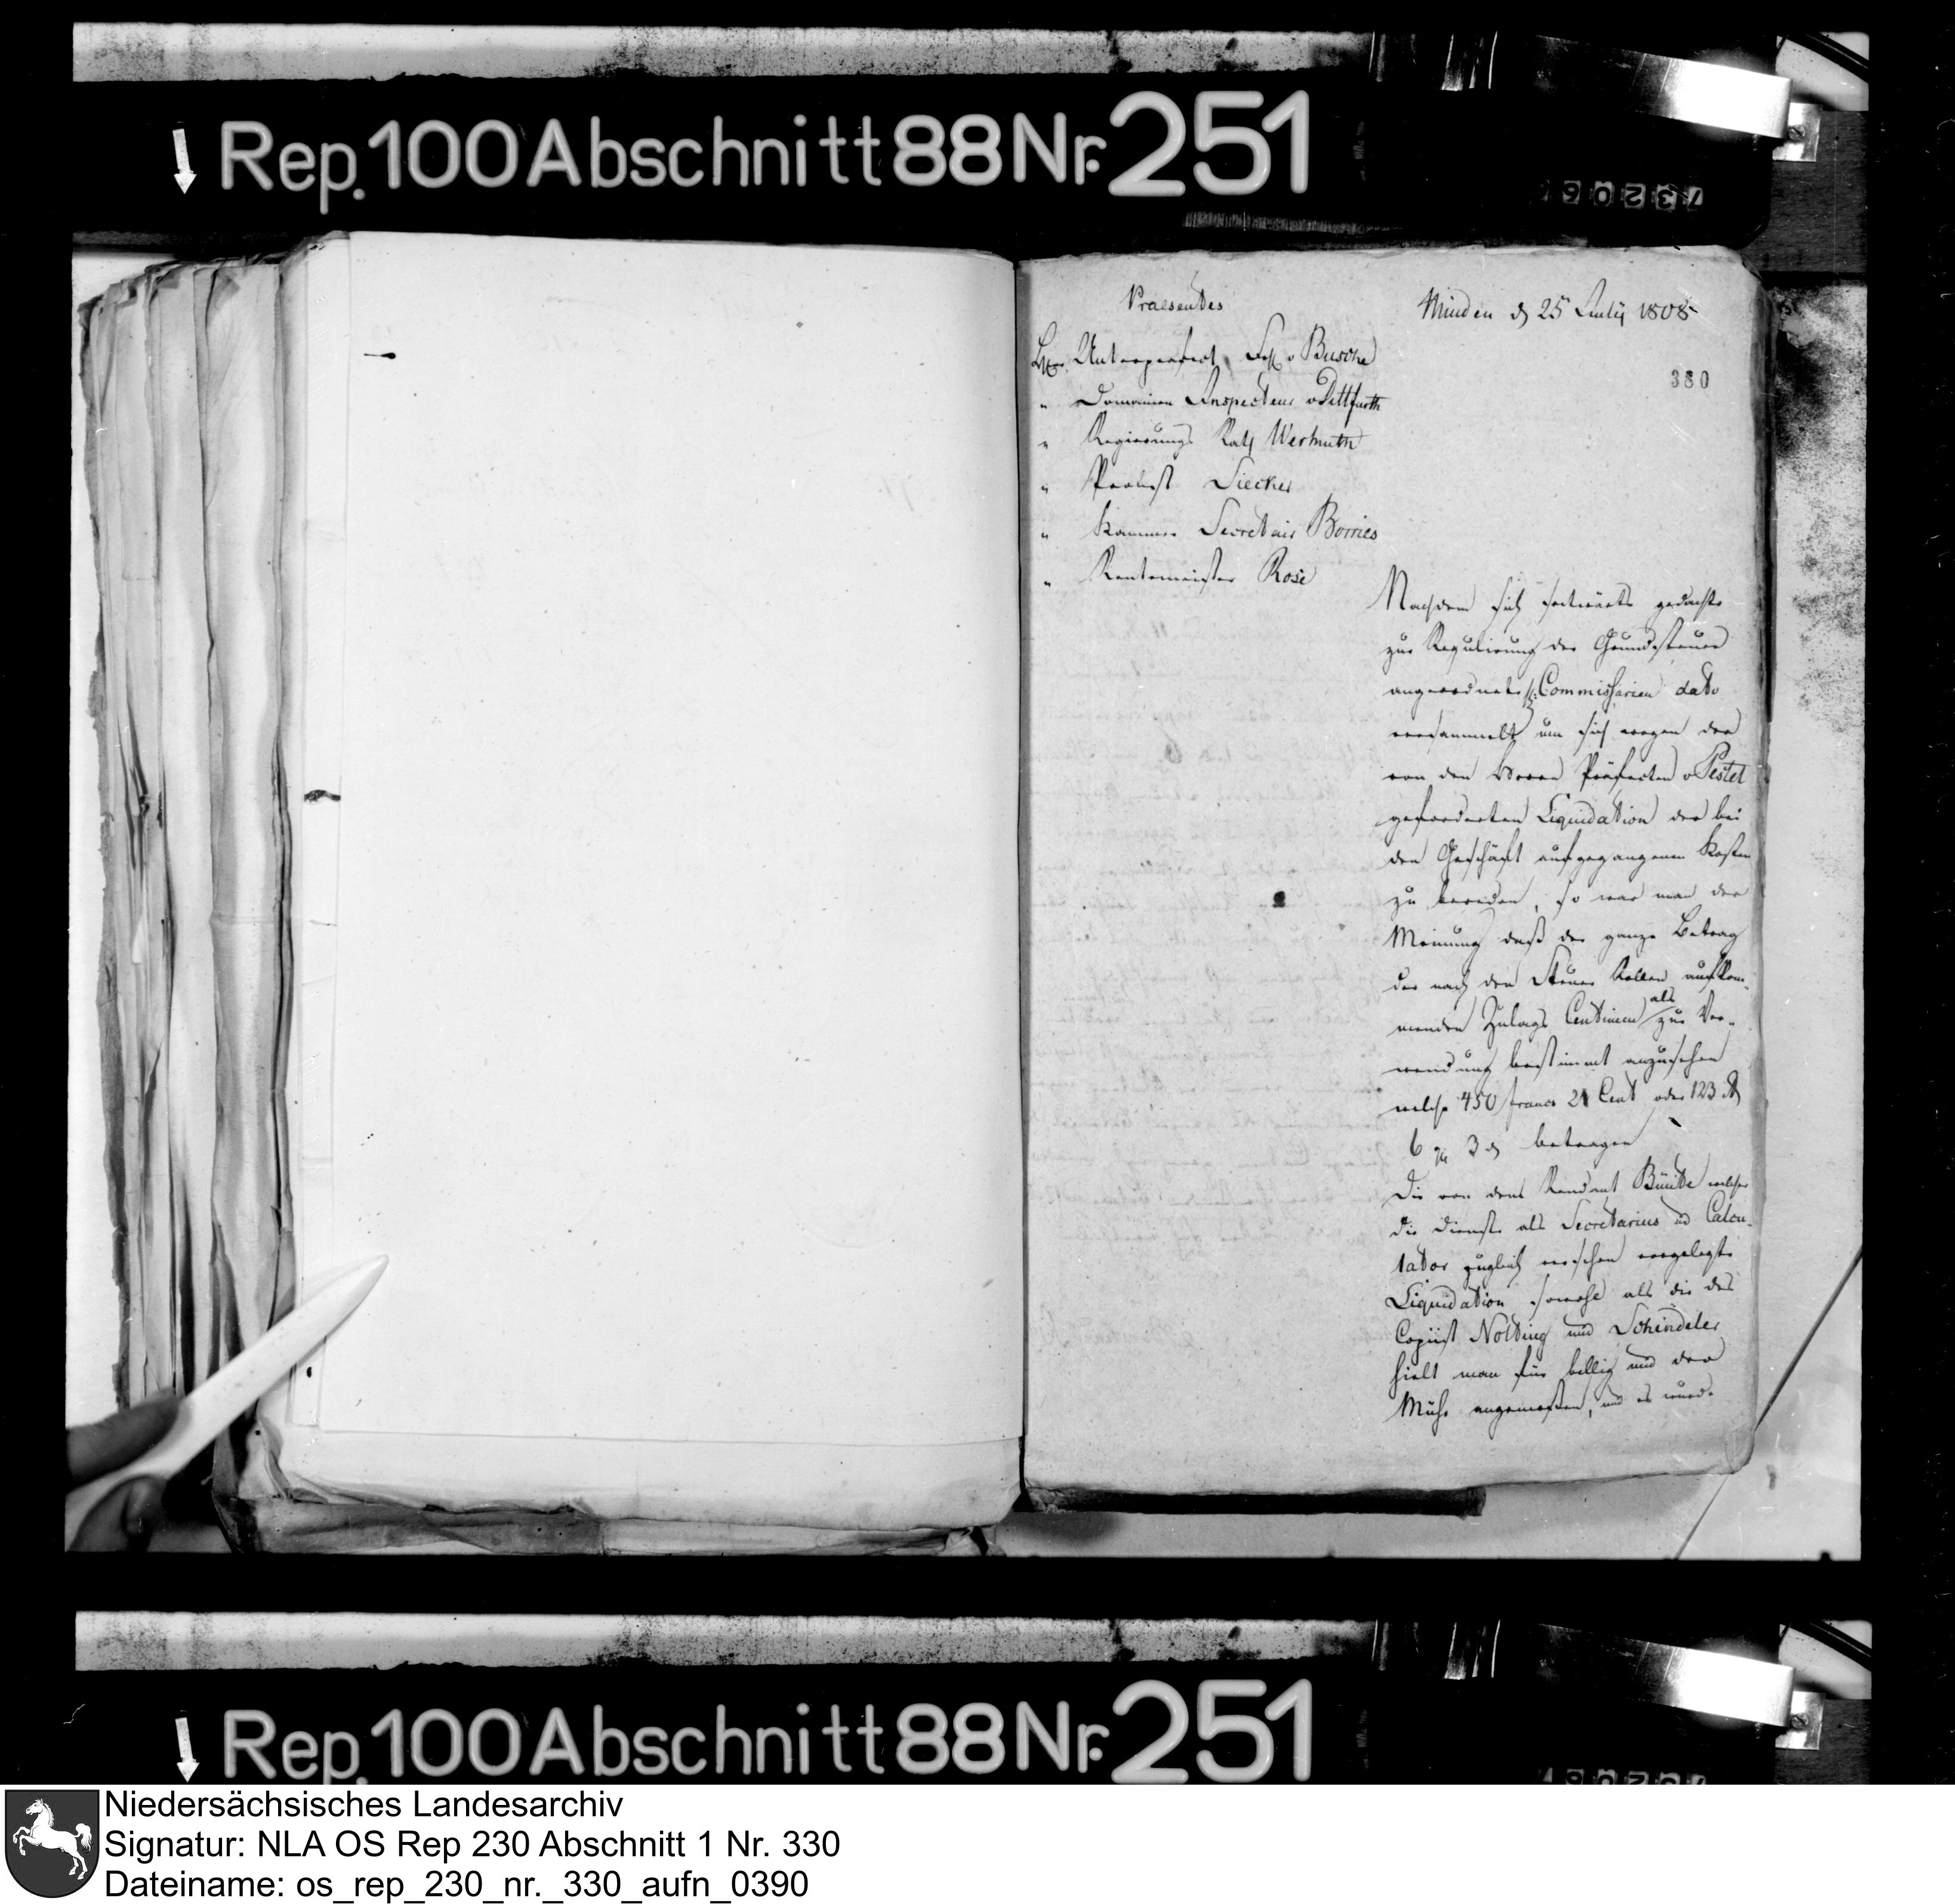 Rep. 100 Abschnitt 88 Nr. 251
73206
Praesentes
Minden d 25 July 1808
380
H. Unterpraefect Frh v Busche
" Domainen Inspecteur v Dittfurth
" Regierungs Rath Wermuth
" Probst Siecker
" Kammer Secretair Borries
" Rentemeister Rose
Nachdem sich seitwärts gedachte
zur Regulirung der Grundsteuer
angeordnete Commissarien dato
versammelt um sich wegen der
von den Herrn Präfecten v Pestel
geforderten Liquidation der bei
den Geschäft aufgegangenen Kosten
zu bereden, so war man der
Meinung daß der ganze Betrag
der nach den Steuer Rollen aufkom-
menden Zulags Centimen als zur Ver-
wendung bestimmt anzusehen
welche 450 francs 21 Cent oder 123 rt
6 ggr 3 d betragen
Die von dem Rendant Bünte welcher
die Dienste als Secretarius und Calcu-
lator zugleich versehen vorgelegte
Liquidation sowohl als die des
Copiist Nolting und Schindeler
hielt man für billig und der
Mühe angemessen, und es wurde
Rep. 100 Abschnitt 88 Nr. 251
Niedersächsisches Landesarchiv
Signatur: NLA OS Rep 230 Abschnitt 1 Nr. 330
Dateiname: os_rep_230_nr._330_aufn_0390